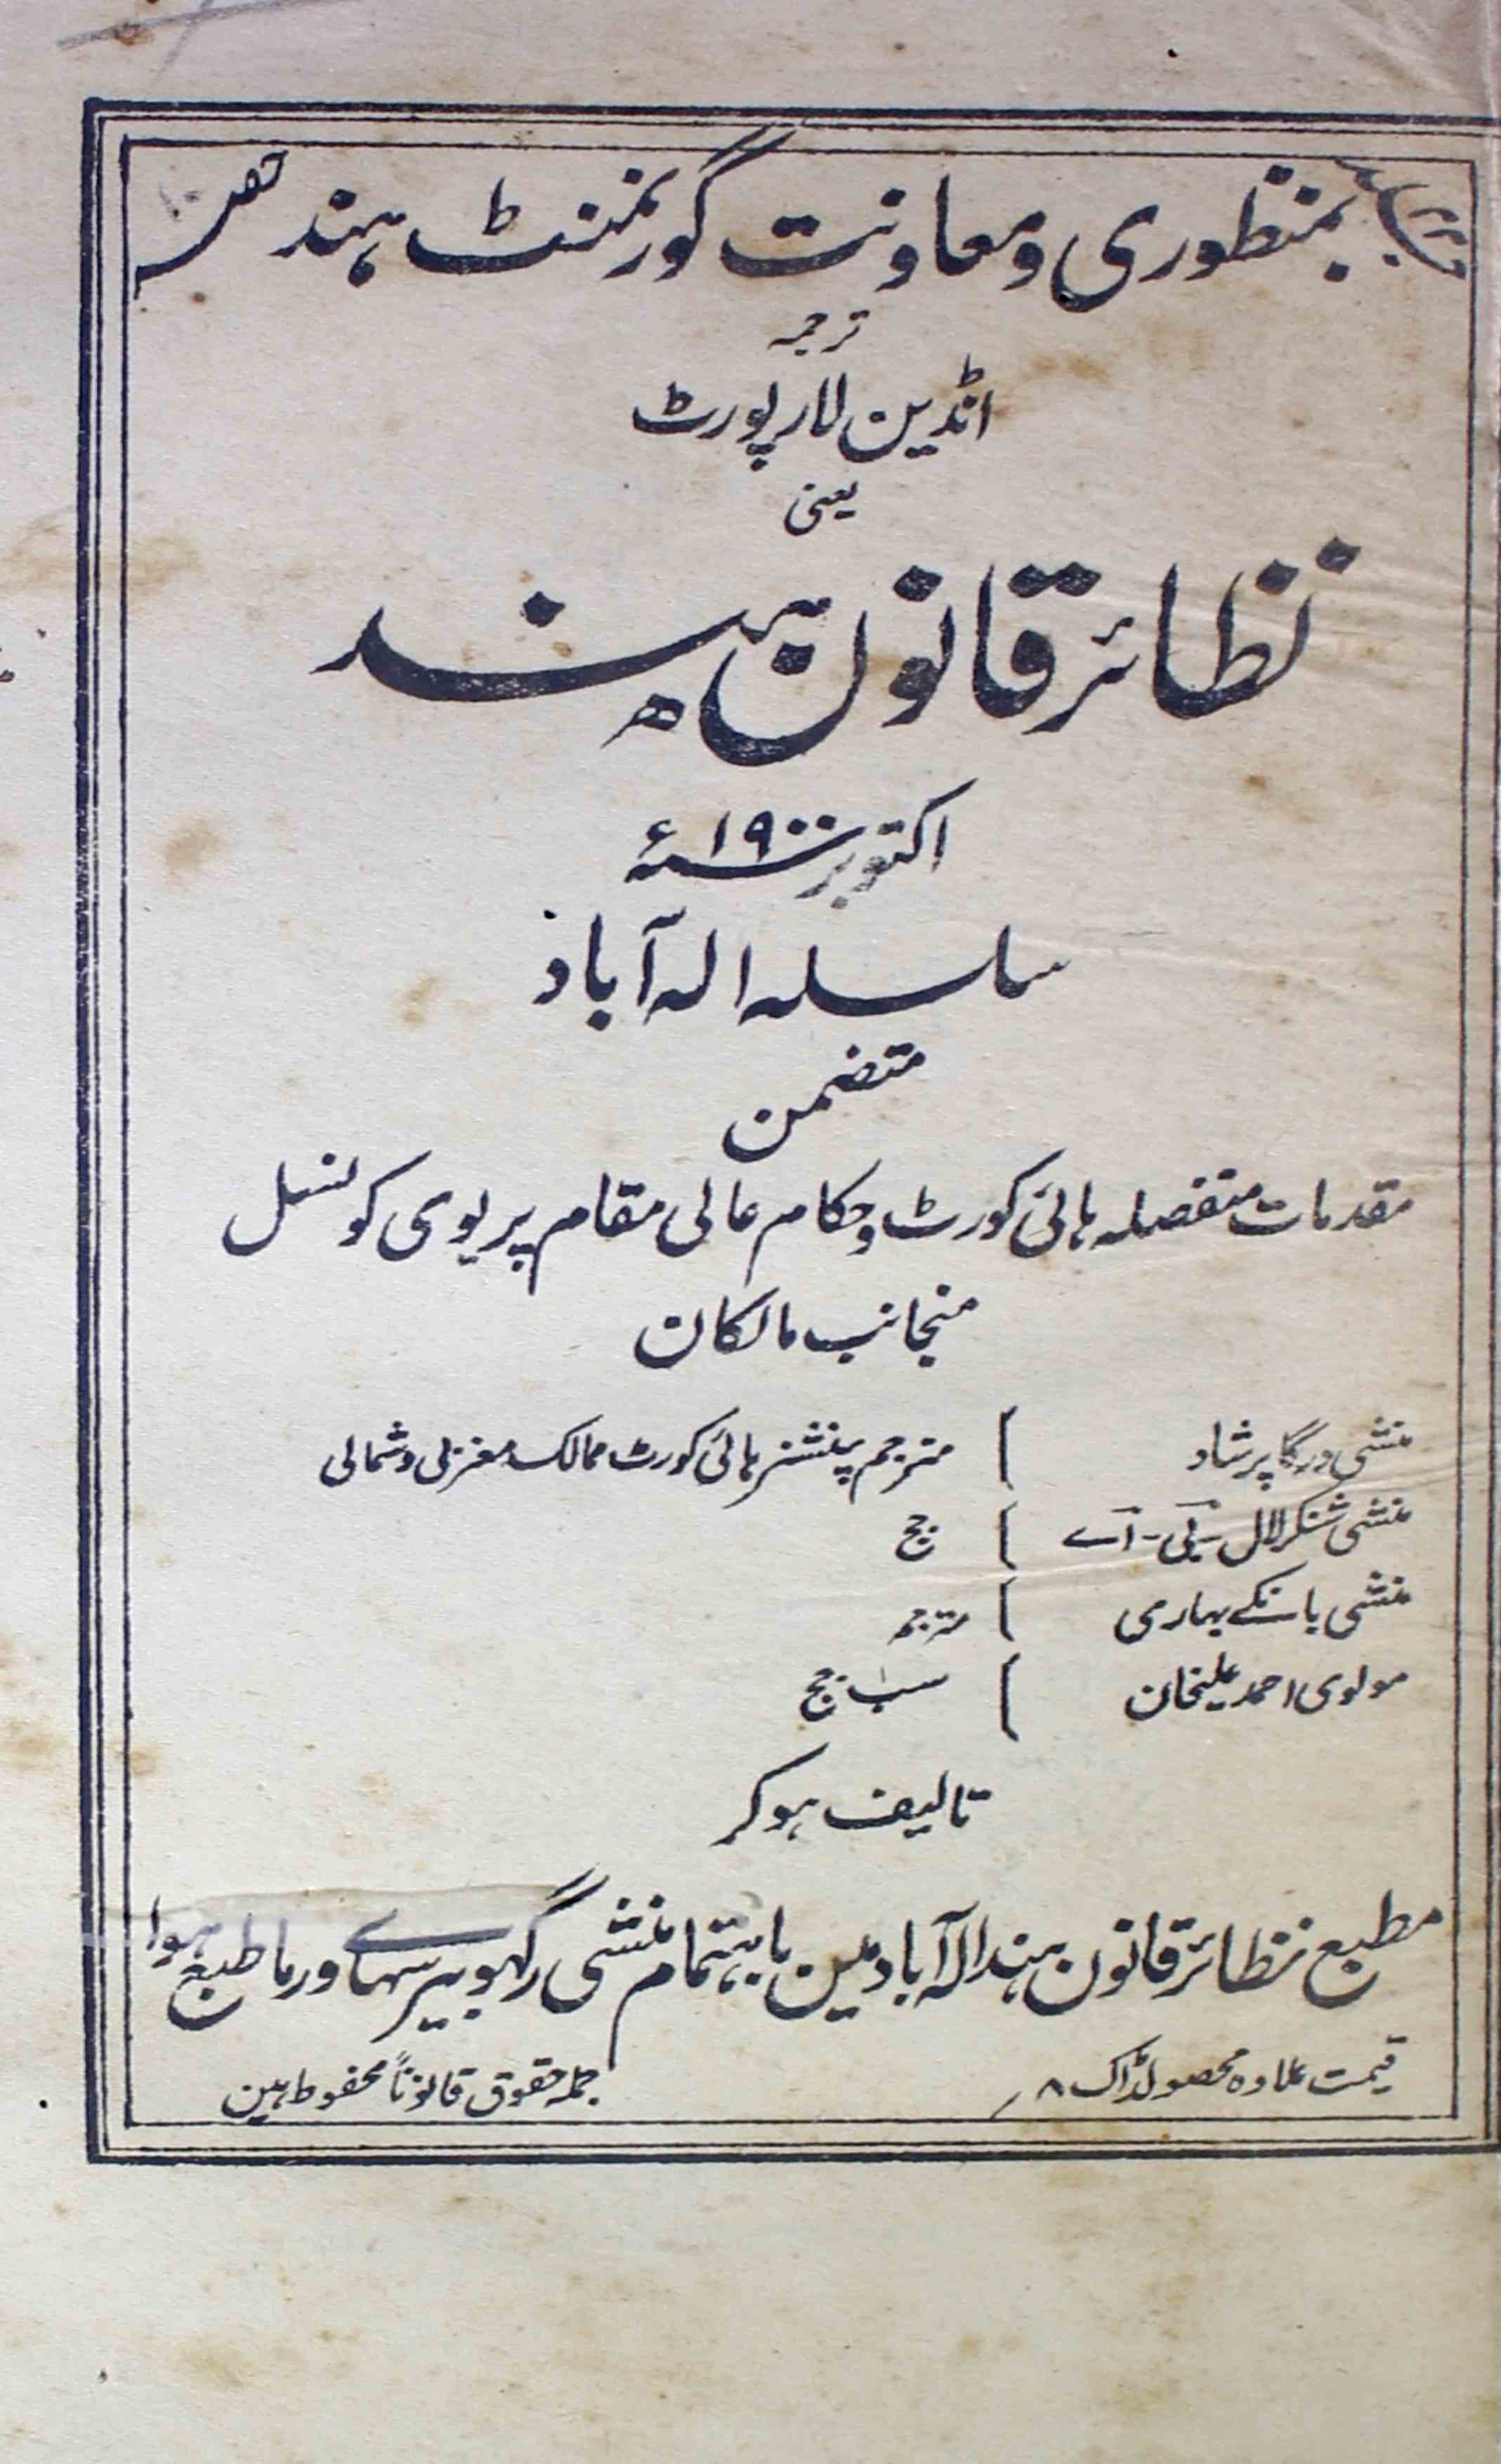 بمنظوری و معاونت گورنمنٹ ہند
ترجمہ
انڈین لارپورٹ
یعنی
نظائر قانون ہند
اکتوبر ۱۹۰۰ء
سلسلہ الہ آباد
متضمن
مقدمات منفصلہ ہائی کورٹ و حکام عالی مقام پریوی کونسل
منجانب مالکان
منشی درگا پرشاد ) مترجم پنشنر ہائی کورٹ ممالک مغربی و شمالی
منشی شنکر لال - بی - اے ) جج
منشی بانکے بہاری ) مترجم
مولوی احمد علیخان ) سب جج
تالیف ہوکر
مطبع نظائر قانون ہند الہ آباد مین باہتمام منشی رگہوبیر سہاے ورما طبع ہوا
قیمت علاوہ محصولڈاک ۸؍
جملہ حقوق قانوناً محفوظ ہین